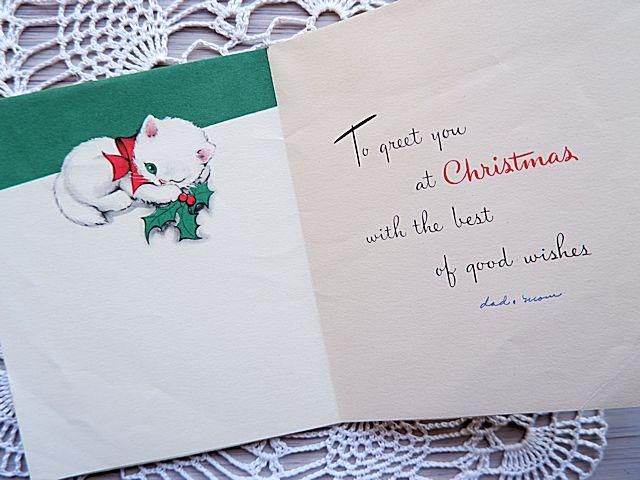 To greet you
at Christmas
with the best
of good wishes
dad, mom